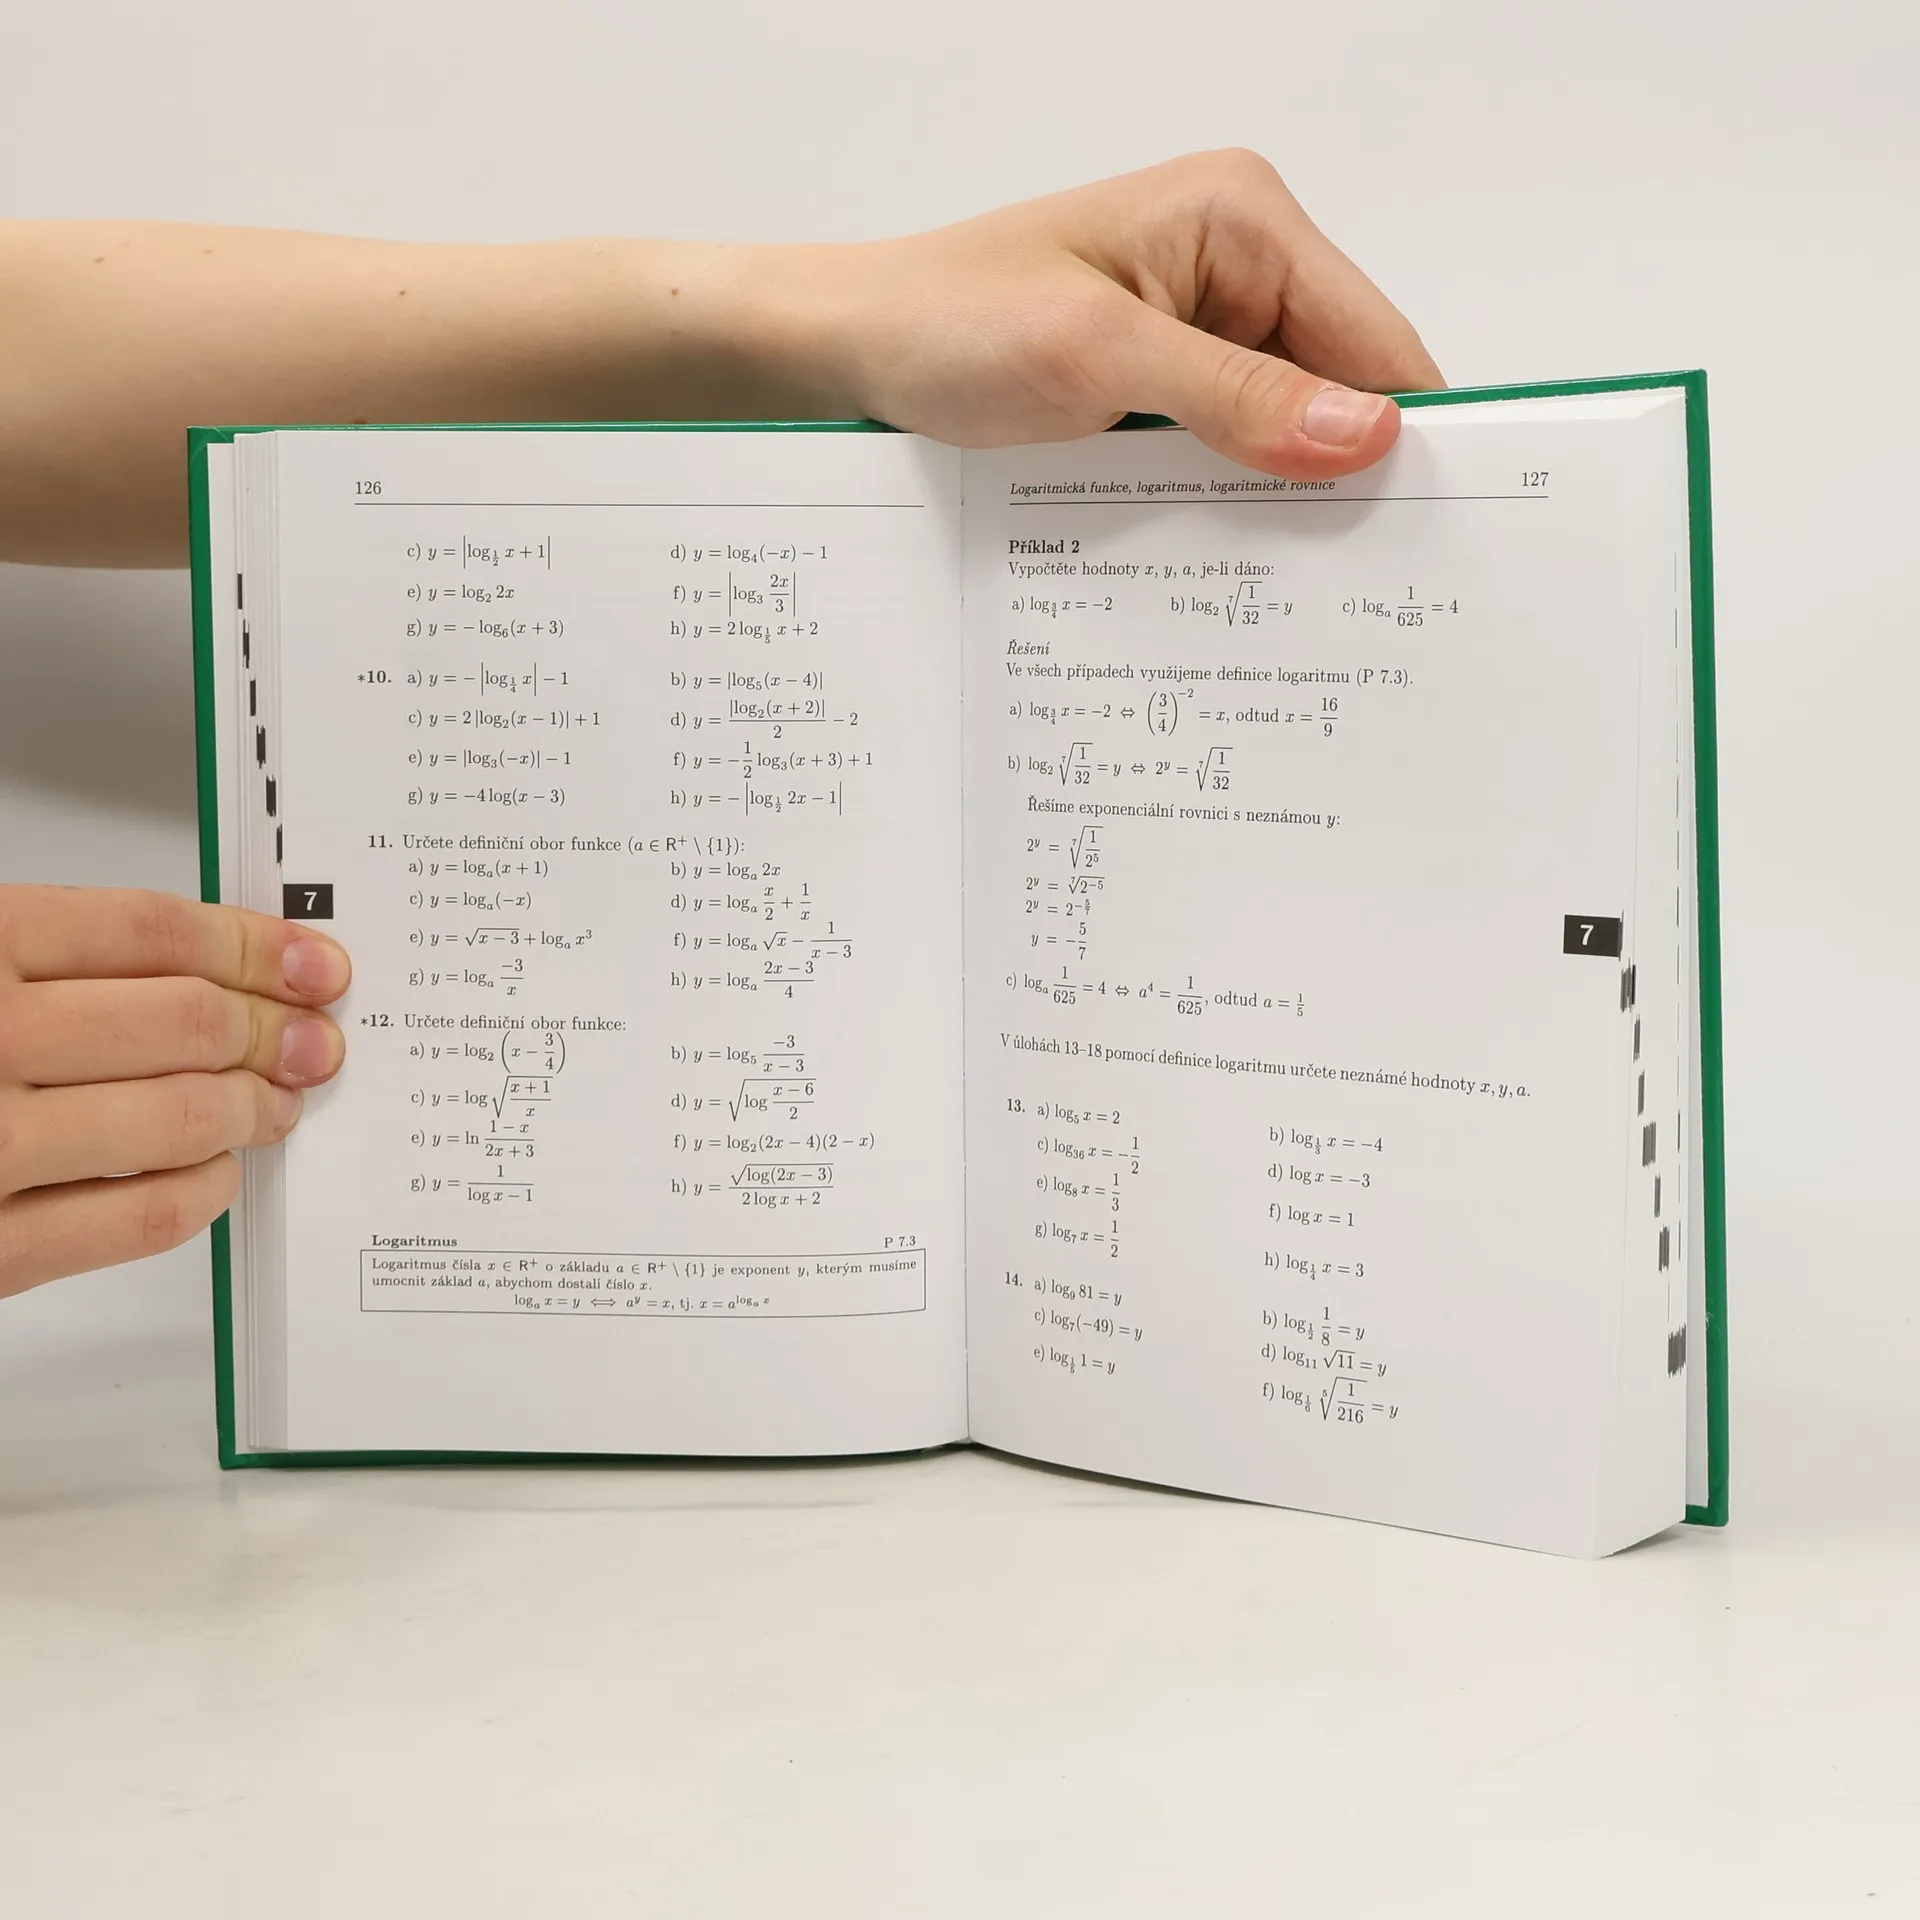 126
c) y = |log_{1/2} x + 1| d) y = log₄(−x) − 1
e) y = log₂ 2x f) y = |log₃ 2x/3|
g) y = − log₆(x + 3) h) y = 2 log_{1/5} x + 2
*10. a) y = − |log_{1/4} x| − 1 b) y = |log₅(x − 4)|
c) y = 2 |log₂(x − 1)| + 1 d) y = |log₂(x + 2)|/2 − 2
e) y = |log₃(−x)| − 1 f) y = −1/2 log₃(x + 3) + 1
g) y = −4 log(x − 3) h) y = − |log_{1/2} 2x − 1|
11. Určete definiční obor funkce (a ∈ R⁺ \ {1}):
a) y = logₐ(x + 1) b) y = logₐ 2x
c) y = logₐ(−x) d) y = logₐ x/2 + 1/x
e) y = √(x − 3) + logₐ x³ f) y = logₐ √x − 1/(x − 3)
g) y = logₐ −3/x h) y = logₐ (2x − 3)/4
7
*12. Určete definiční obor funkce:
a) y = log₂ (x − 3/4) b) y = log₅ −3/(x − 3)
c) y = log √((x + 1)/x) d) y = √(log (x − 6)/2)
e) y = ln (1 − x)/(2x + 3) f) y = log₂(2x − 4)(2 − x)
g) y = 1/(log x − 1) h) y = √(log(2x − 3))/(2 log x + 2)
Logaritmus P 7.3
Logaritmus čísla x ∈ R⁺ o základu a ∈ R⁺ \ {1} je exponent y, kterým musíme
umocnit základ a, abychom dostali číslo x.
logₐ x = y ⟺ a^y = x, tj. x = a^{logₐ x}
Logaritmická funkce, logaritmus, logaritmické rovnice 127
Příklad 2
Vypočtěte hodnoty x, y, a, je-li dáno:
a) log_{3/4} x = −2 b) log₂ ⁷√(1/32) = y c) logₐ 1/625 = 4
Řešení
Ve všech případech využijeme definice logaritmu (P 7.3).
a) log_{3/4} x = −2 ⇔ (3/4)^{−2} = x, odtud x = 16/9
b) log₂ ⁷√(1/32) = y ⇔ 2^y = ⁷√(1/32)
Řešíme exponenciální rovnici s neznámou y:
2^y = ⁷√(1/2⁵)
2^y = ⁷√(2^{−5})
2^y = 2^{−5/7}
y = −5/7
7
c) logₐ 1/625 = 4 ⇔ a⁴ = 1/625, odtud a = 1/5
V úlohách 13–18 pomocí definice logaritmu určete neznámé hodnoty x, y, a.
13. a) log₅ x = 2 b) log_{1/3} x = −4
c) log₃₆ x = −1/2 d) log x = −3
e) log₈ x = 1/3 f) log x = 1
g) log₇ x = 1/2 h) log_{1/4} x = 3
14. a) log₉ 81 = y b) log_{1/2} 1/8 = y
c) log₇(−49) = y d) log₁₁ √11 = y
e) log_{1/5} 1 = y f) log_{1/6} ⁵√(1/216) = y